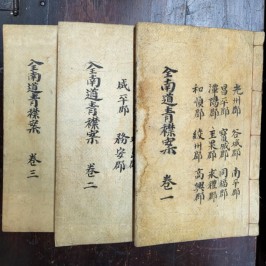 光州郡 谷城郡 南平郡
昌平郡 寶城郡 同福郡
潭陽郡 玉果郡 求禮郡
和順郡 綾州郡 高興郡
全南道青襟案 卷一
咸平郡 務安郡
全南道青襟案 卷二
全南道青襟案 卷三